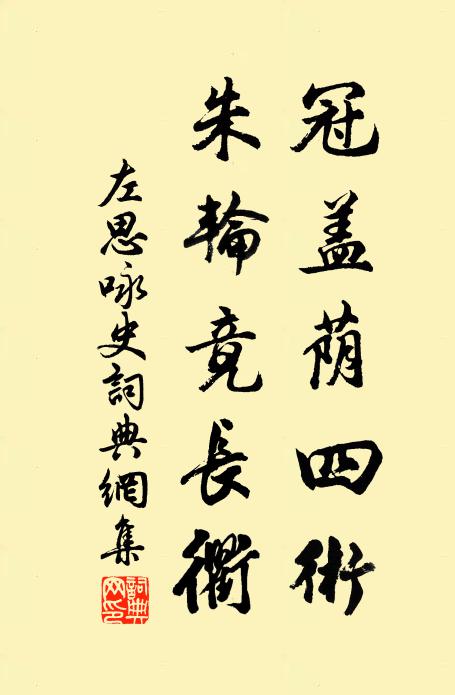 冠盖荫四術
朱輪竟長衢
左思咏史詞典網集
詞典網印